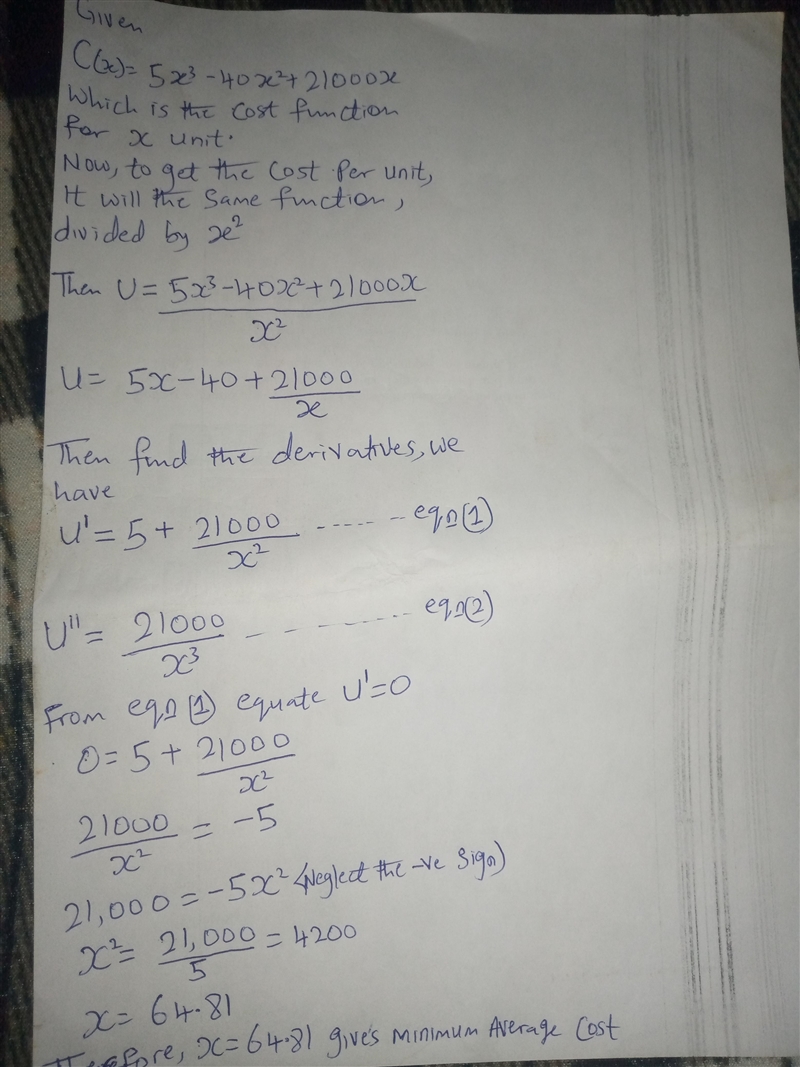 Given
C(x)= 5x³-40x²+21000x
Which is the cost function
for x unit.
Now, to get the cost per unit,
It will the same function,
divided by x²
Then U= 5x³-40x²+21000x
x²
U= 5x-40+21000
x
Then find the derivatives, we
have
U'= 5+ 21000 ------ eqn(1)
x²
U''= 21000 - - - ------- eqn(2)
x³
From eqn(1) equate U'=0
0=5+ 21000
x²
21000 = -5
x²
21,000 = -5x² (Neglect the -ve sign)
x²= 21,000 = 4200
5
x= 64.81
Therefore, x=64.81 gives minimum Average cost